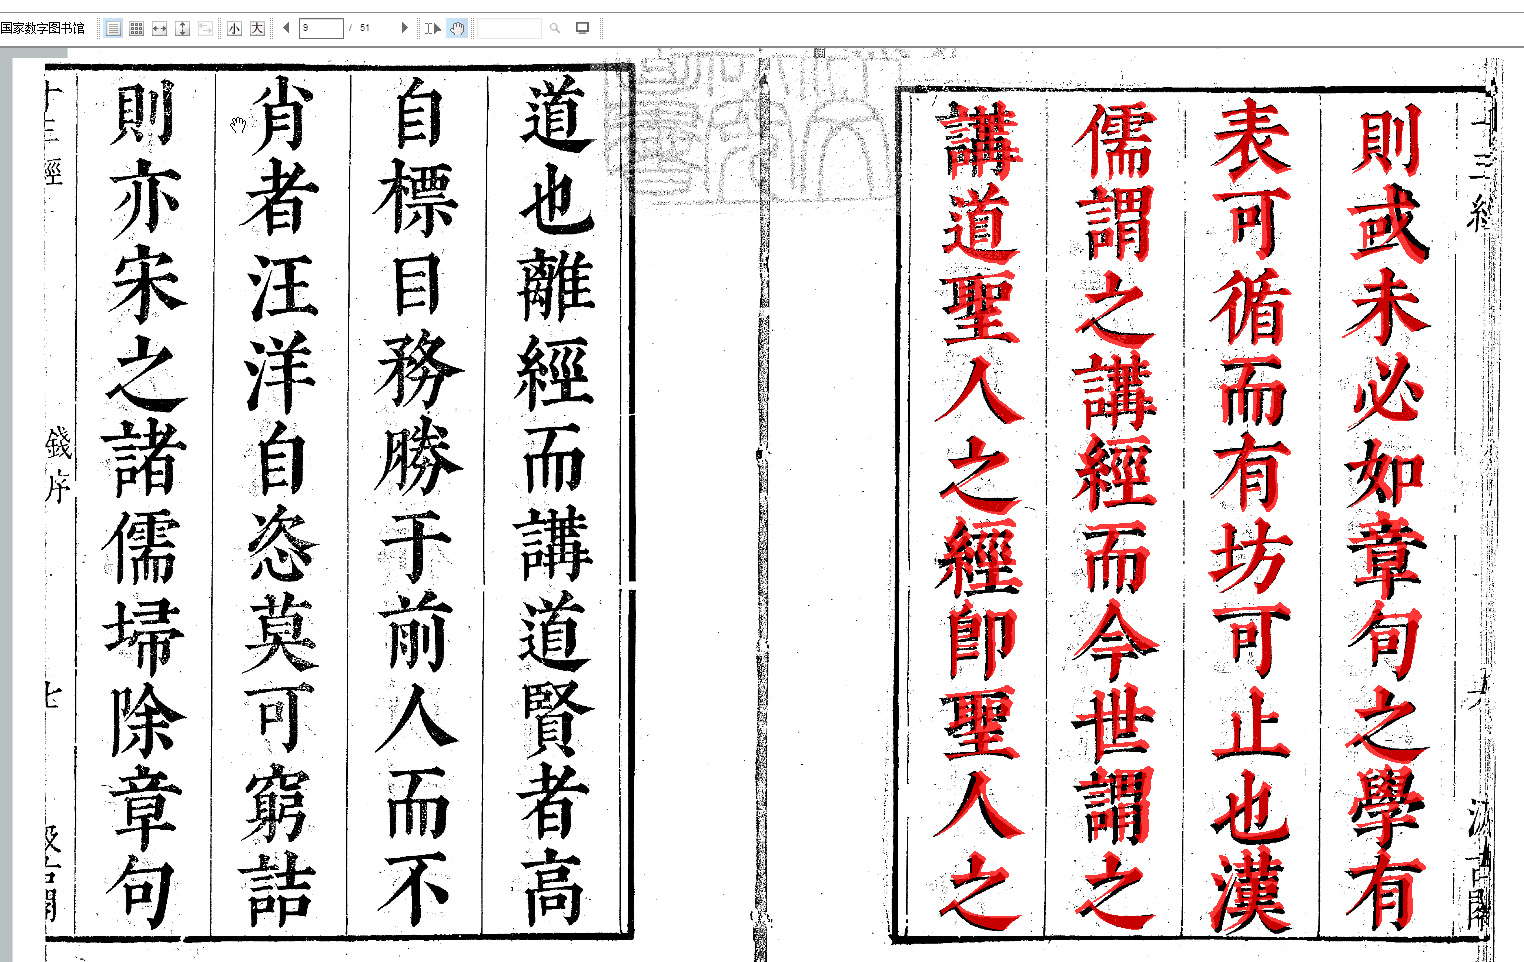 国家数字图书馆 小 大 9 / 51
十三經
則或未必如章句之學有
表可循而有坊可止也漢
儒謂之講經而今世謂之
講道聖人之經卽聖人之
道也離經而講道賢者高
自標目務勝于前人而不
肖者汪洋自恣莫可窮詰
則亦宋之諸儒埽除章句
十三經
錢序
七
汲古閣